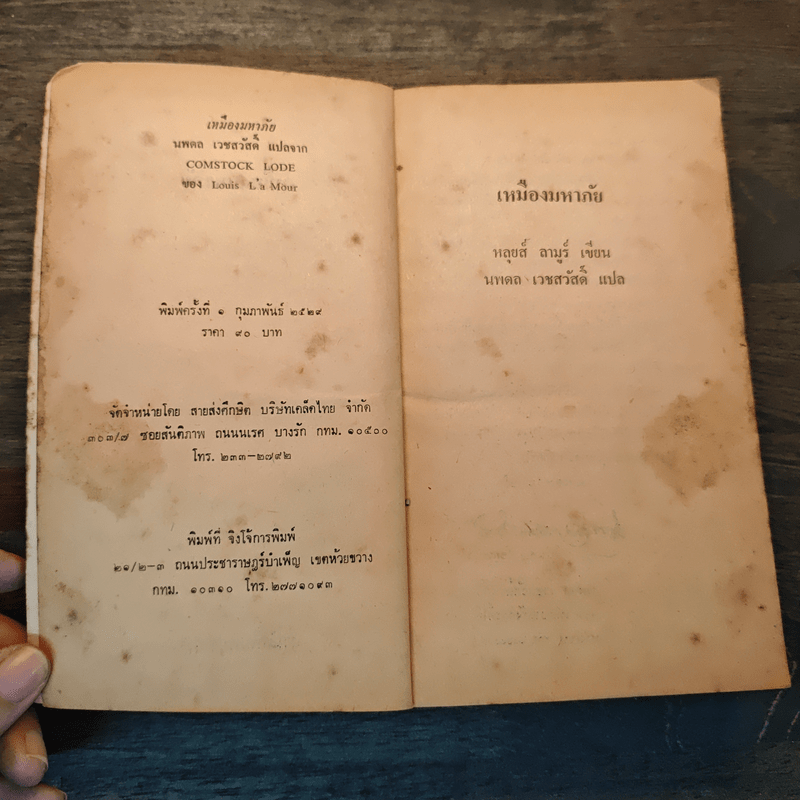 เหมืองมหาภัย
นพดล เวชสวัสดิ์ แปลจาก
COMSTOCK LODE
ของ Louis L'a Mour
พิมพ์ครั้งที่ ๑ กุมภาพันธ์ ๒๕๒๙
ราคา ๙๐ บาท
จัดจำหน่ายโดย สายส่งศึกษิต บริษัทเคล็ดไทย จำกัด
๓๐๓/๗ ซอยสันติภาพ ถนนนเรศ บางรัก กทม. ๑๐๕๐๐
โทร. ๒๓๓-๒๗๙๒
พิมพ์ที่ จิงโจ้การพิมพ์
๒๑/๒-๓ ถนนประชาราษฎร์บำเพ็ญ เขตห้วยขวาง
กทม. ๑๐๓๑๐ โทร.๒๗๗๑๐๙๓
เหมืองมหาภัย
หลุยส์ ลามูร์ เขียน
นพดล เวชสวัสดิ์ แปล